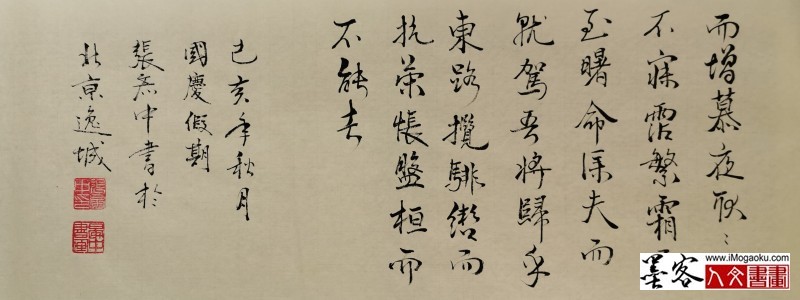 而增慕夜耿〻
不寐霑繁霜
至曙命僕夫而
就駕吾將歸乎
東路攬騑轡而
抗策悵盤桓而
不能去
己亥年秋月
國慶假期
張中書於
北京逸城
墨客
www.iMogaoku.com
人文書畫